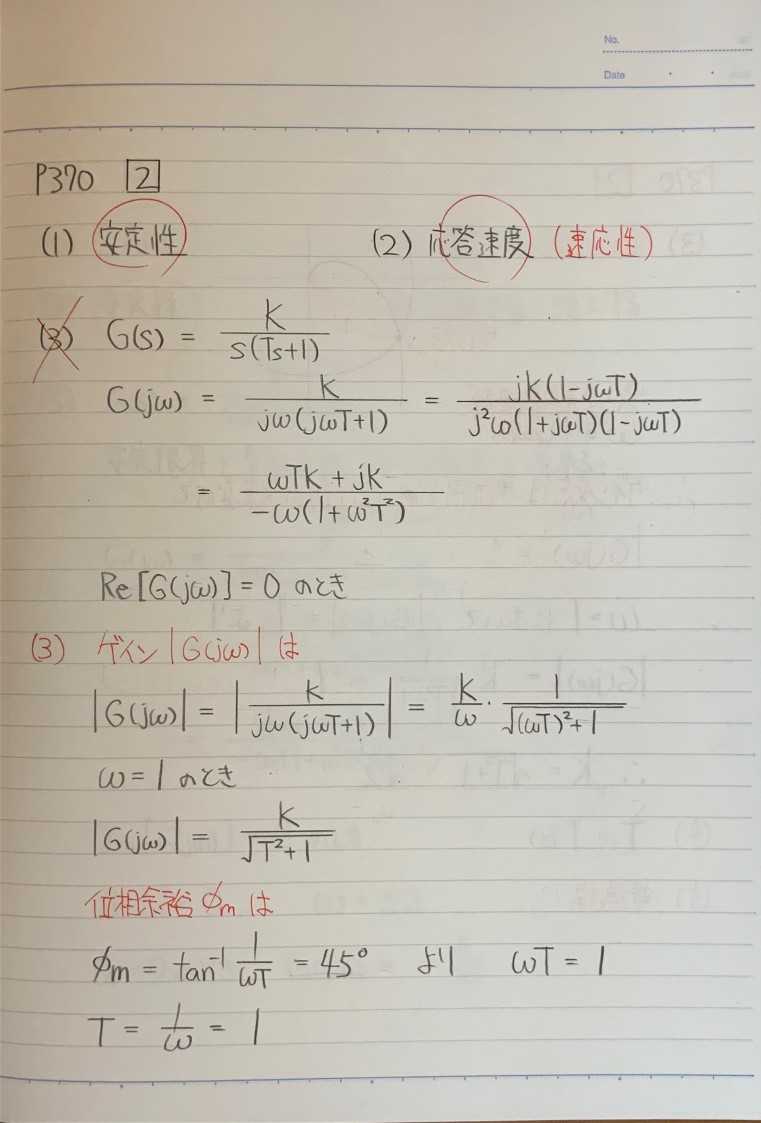 No.
Date
P370 2
(1) 安定性 (2) 応答速度 (速応性)
(3) G(s) = K / s(Ts+1)
G(jω) = K / jω(jωT+1) = jK(1-jωT) / j²ω(1+jωT)(1-jωT)
= ωTK + jK / -ω(1+ω²T²)
Re[G(jω)] = 0 のとき
(3) ゲイン |G(jω)| は
|G(jω)| = |K / jω(jωT+1)| = K/ω · 1/√(ωT)²+1
ω = 1 のとき
|G(jω)| = K / √T²+1
位相余裕 φm は
φm = tan⁻¹ 1/ωT = 45° より ωT = 1
T = 1/ω = 1